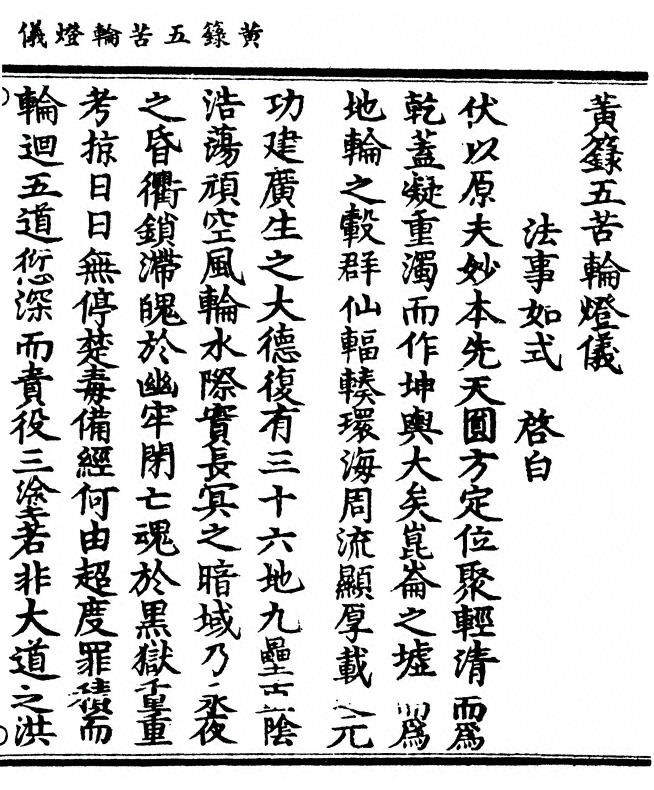 黃籙五苦輪燈儀
黃籙五苦輪燈儀
法事如式　啓白
伏以原夫妙本先天圓方定位聚輕清而爲
乾蓋凝重濁而作坤輿大矣崑崙之墟而爲
地輪之轂群仙輻輳環海周流顯厚載之元
功建廣生之大德復有三十六地九壘陰
浩蕩頑空風輪水際實長冥之暗域乃永夜
之昏衢鎖滯魄於幽牢閉亡魂於黑獄重重
考掠日日無停楚毒備經何由超度罪積而
輪迴五道愆深而責役三塗若非大道之洪